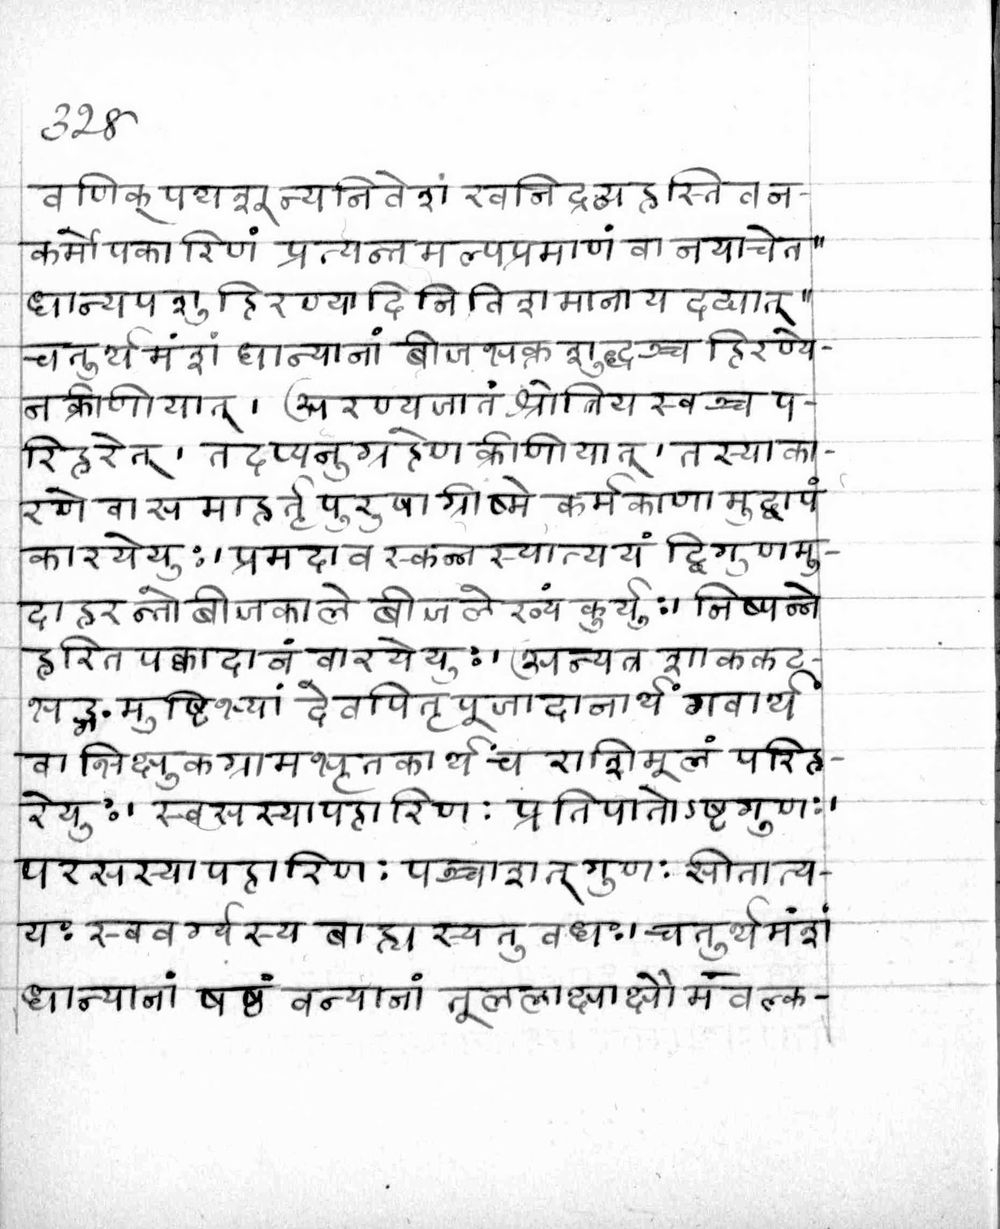 328
वणिक्पथशून्यनिवेशं खनिद्रव्यहस्तिवन-
कर्मोपकारिणं प्रत्यन्तमल्पप्रमाणं वा नयाचेत॥
धान्यपशुहिरण्यादि निविशमानाय दद्यात्॥
चतुर्थमंशं धान्यानां बीजभक्तशुद्धञ्च हिरण्ये-
न क्रीणीयात्। अरण्यजातं श्रोत्रियस्वञ्च प-
रिहरेत्। तदप्यनुग्रहेण क्रीणीयात्। तस्याका-
रणे वा समाहर्तृपुरुषा ग्रीष्मे कर्मकाणामुद्वापं
कारयेयुः। प्रमदावस्कन्नस्यात्ययं द्विगुणमु-
दाहरन्तो बीजकाले बीजलेख्यं कुर्युः। निष्पन्ने
हरितपक्वादानं वारयेयुः। अन्यत्र शाककट-
भङ्ग.मुष्टिभ्यां देवपितृपूजादानार्थं गवार्थं
वा भिक्षुकग्रामभृतकार्थं च राशिमूलं परिह-
रेयुः। स्वसस्यापहारिणः प्रतिपातोऽष्टगुणः।
परसस्यापहारिणः पञ्चाशत्गुणः सीतात्य-
यः स्ववर्ग्यस्य बाह्यस्यतु वधः। चतुर्थमंशं
धान्यानां षष्ठं वन्यानां तूललाक्षाक्षौमंवल्क-